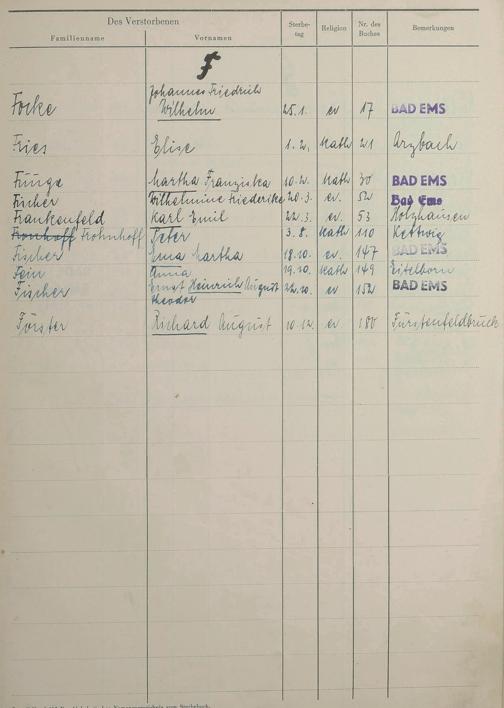 Des Verstorbenen
Familienname Vornamen Sterbe-tag Religion Nr. des Buches Bemerkungen
F
Focke Johannes Friedrich Wilhelm 25.1. ev 17 BAD EMS
Fries Elise 1.2. Kath 21 Arzbach
Martha Franziska 10.2. Kath 30 BAD EMS
Fischer Wilhelmine Friederike 20.3. ev. 52 Bad Ems
Frankenfeld Karl Emil 22.3. ev 53 Holzhausen
Fronhoff Frohnhoff Peter 3.8. Kath 110 Kettwig
Fischer Anna Martha 18.10. ev. 147 BAD EMS
Fein Anna 19.10. Kath 149 Eitelborn
Fischer Ernst Heinrich August Theodor 22.10. ev 152 BAD EMS
Förster Richard August 10.12. ev 180 Fürstenfeldbruck